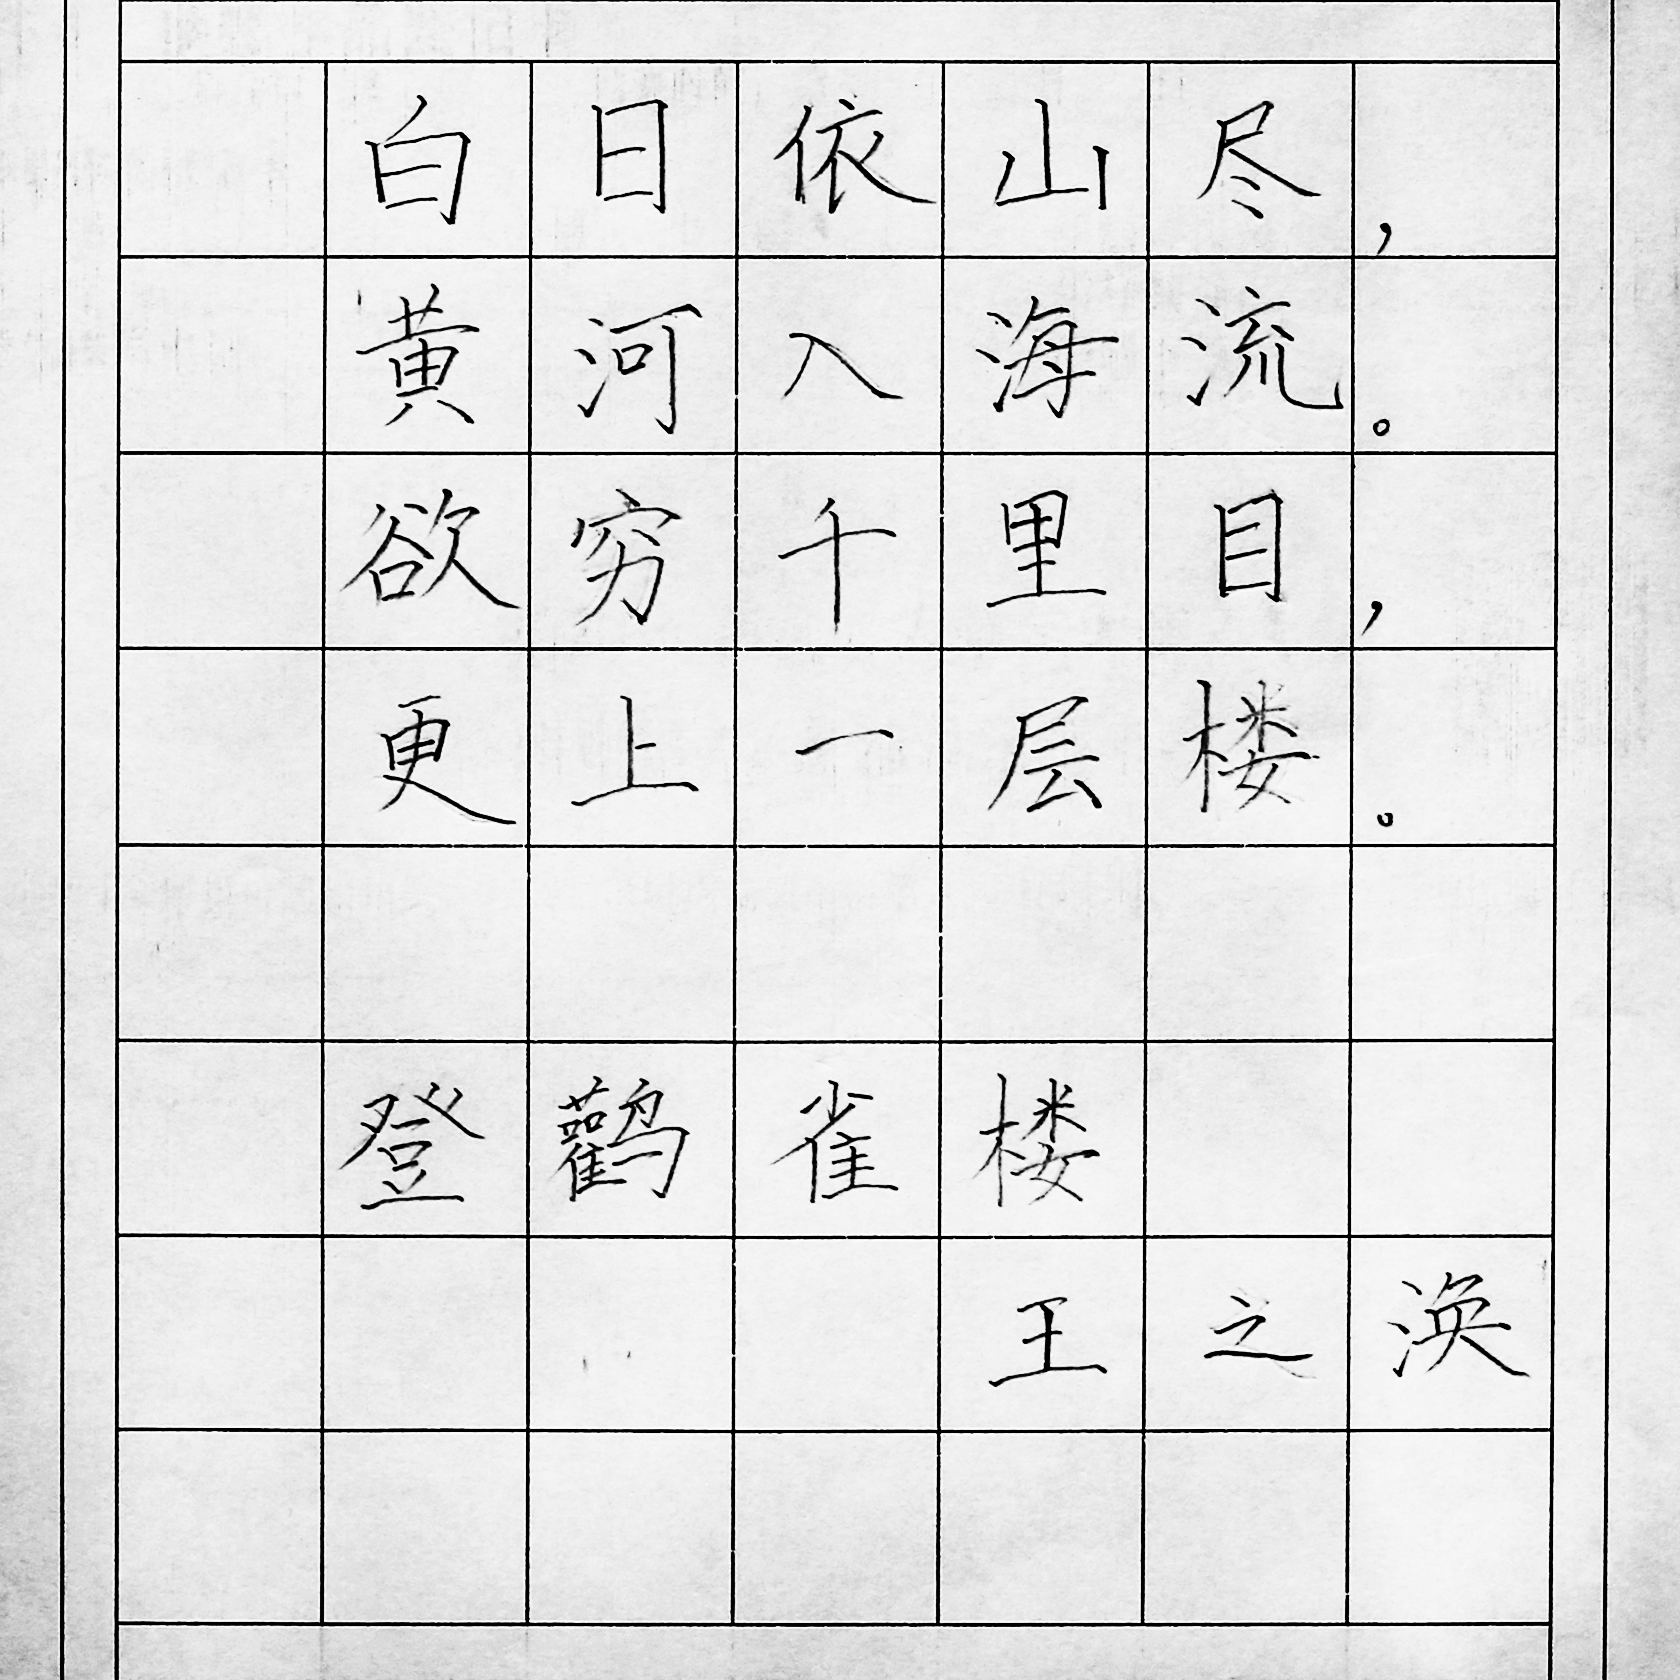 白日依山尽，
黄河入海流。
欲穷千里目，
更上一层楼。
登鹳雀楼
王之涣